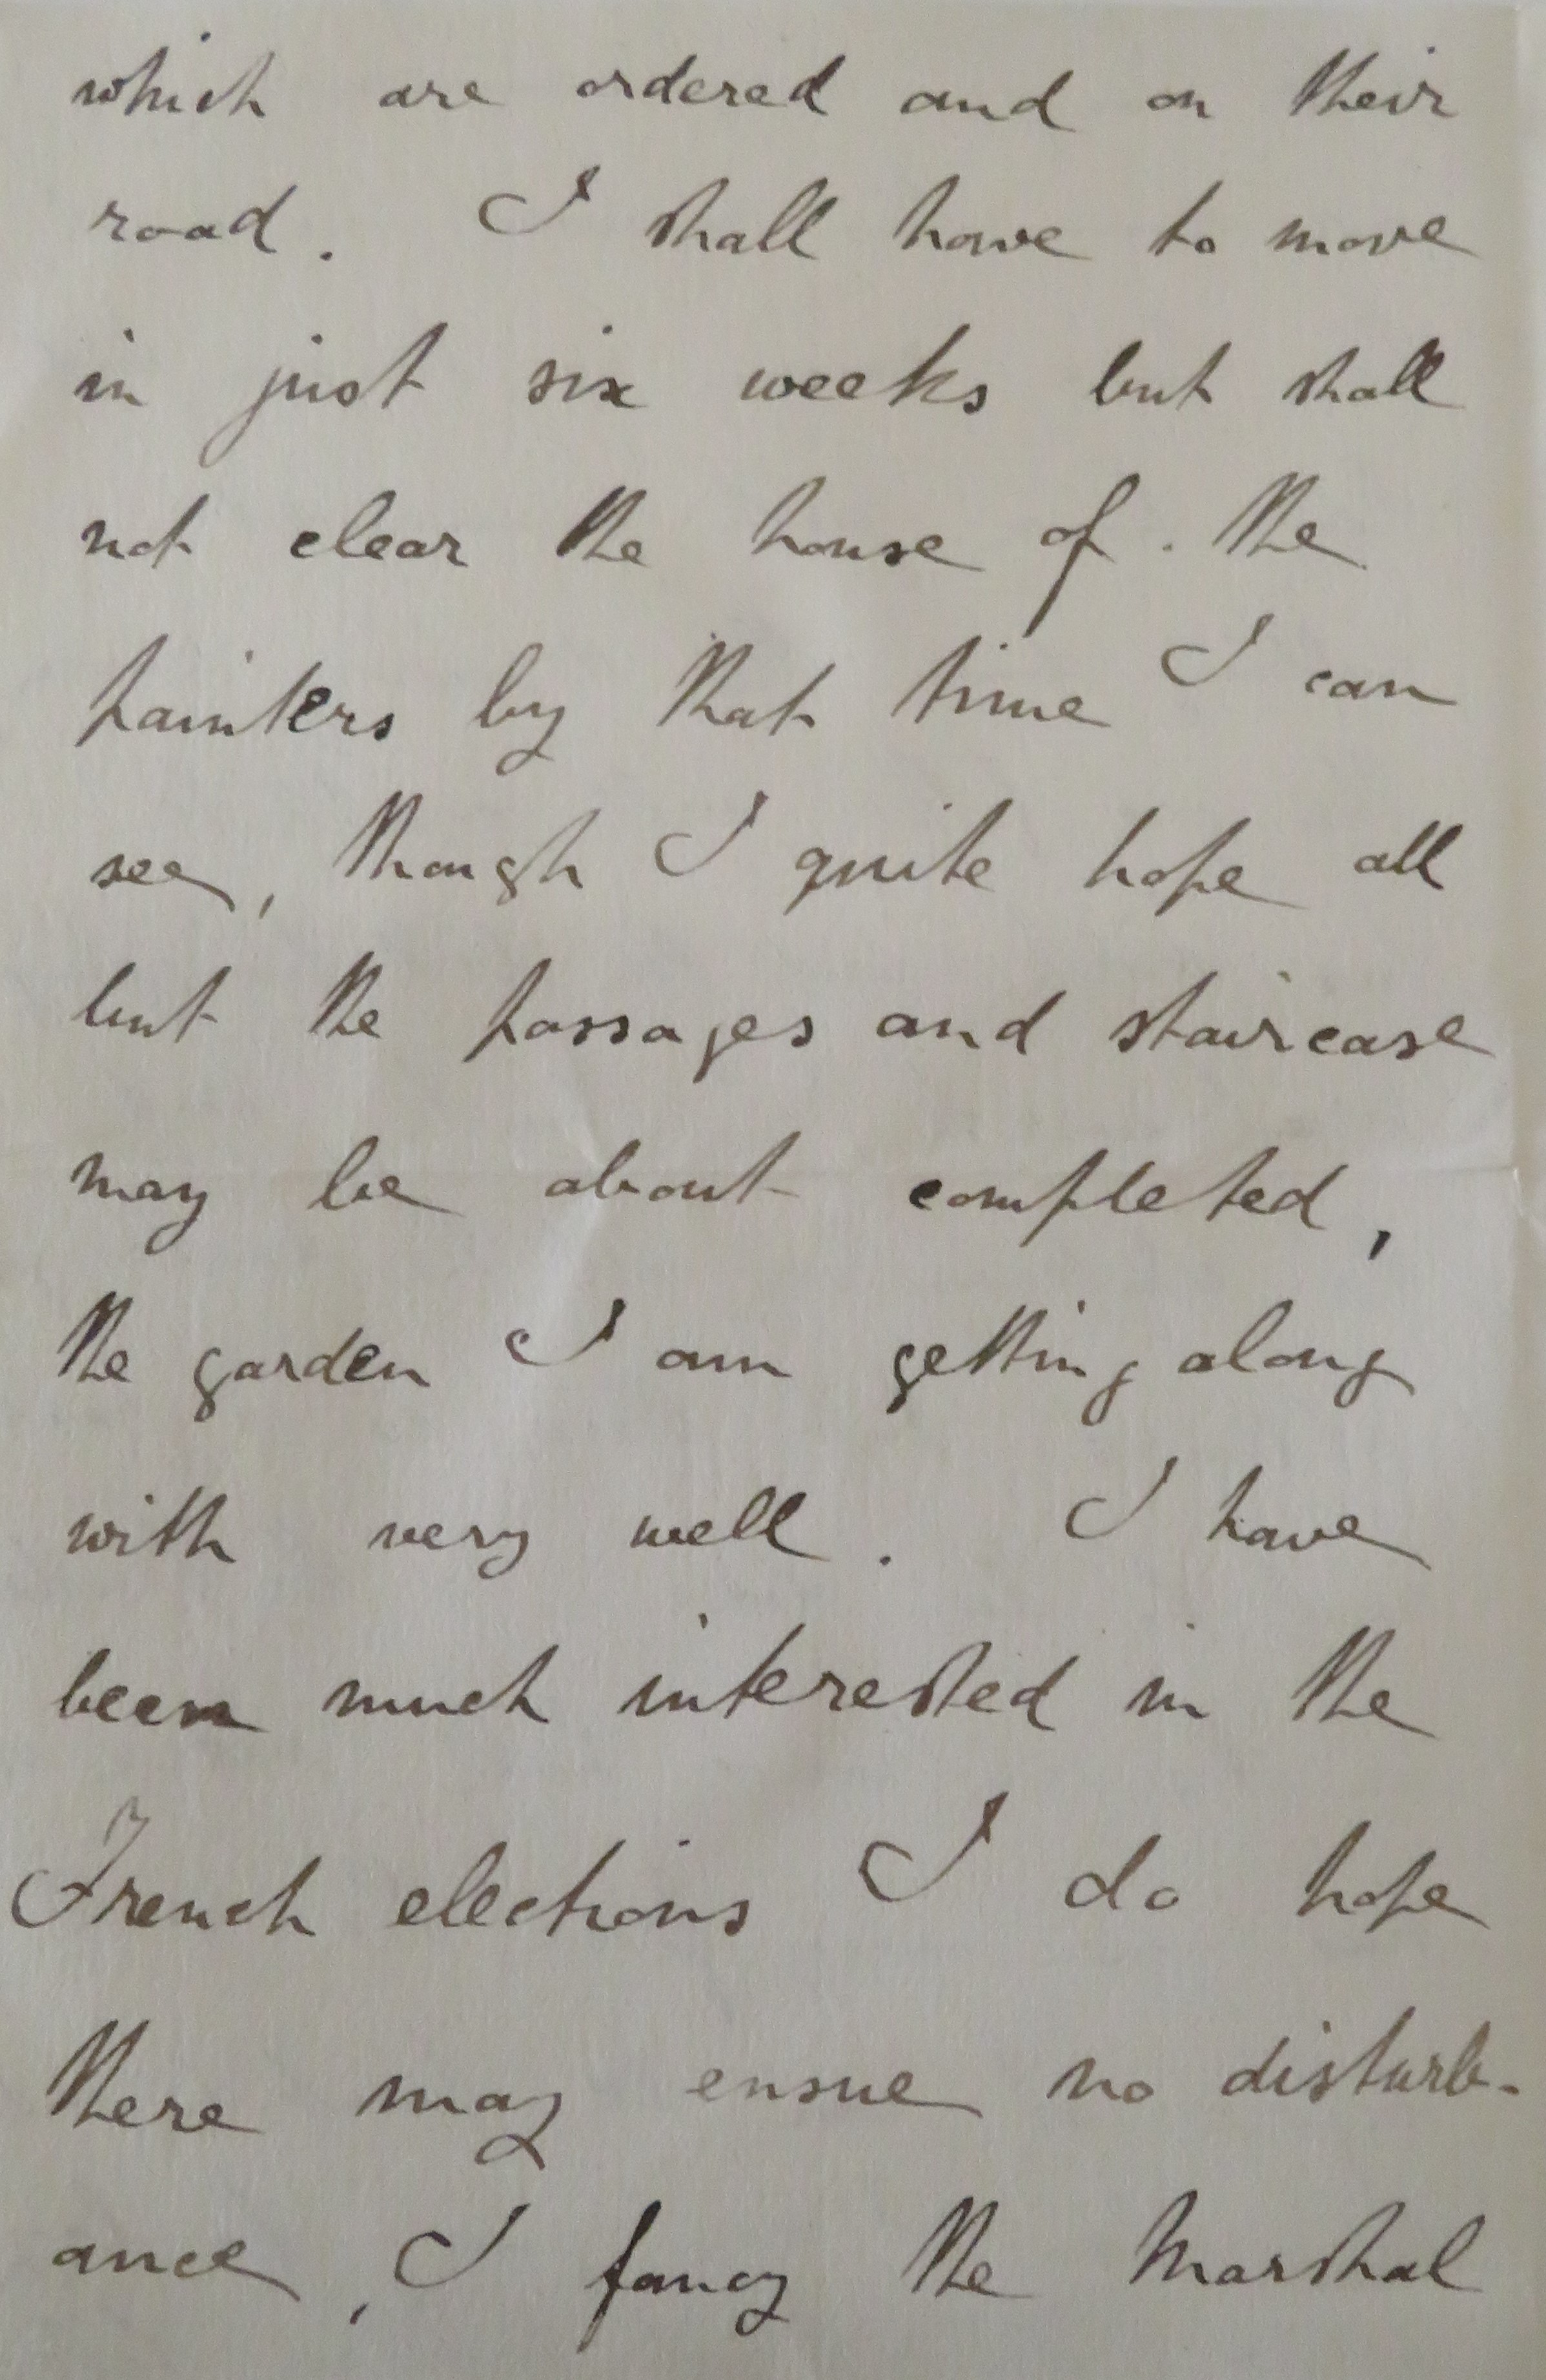 which are ordered and on their
road. I shall have to move
in just six weeks but shall
not clear the house of. the
painters by that time I can
see, though I quite hope all
but the passages and staircase
may be about completed,
the garden I am getting along
with very well. I have
been much interested in the
French elections I do hope
there may ensue no disturb-
ance, I fancy the Marshal